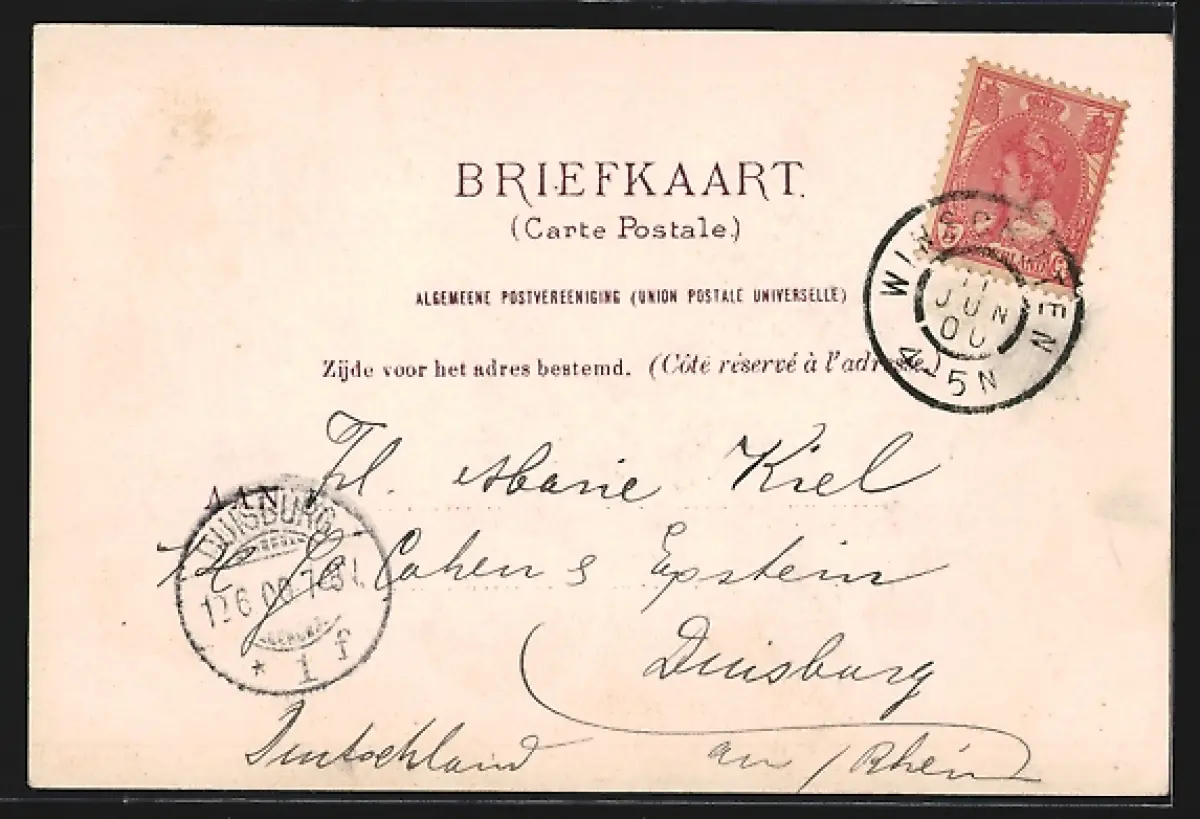 BRIEFKAART.
(Carte Postale.)
ALGEMEENE POSTVEREENIGING (UNION POSTALE UNIVERSELLE)
Zijde voor het adres bestemd. (Côté réservé à l'adresse.)
WINSCHOTEN
11
JUN
00
4-5N
AAN Frl. Marie Kiel
Cohen & Epstein
Duisburg
an / Rhein
Deutschland
DUISBURG
12 6 00 7-8
* 1 f